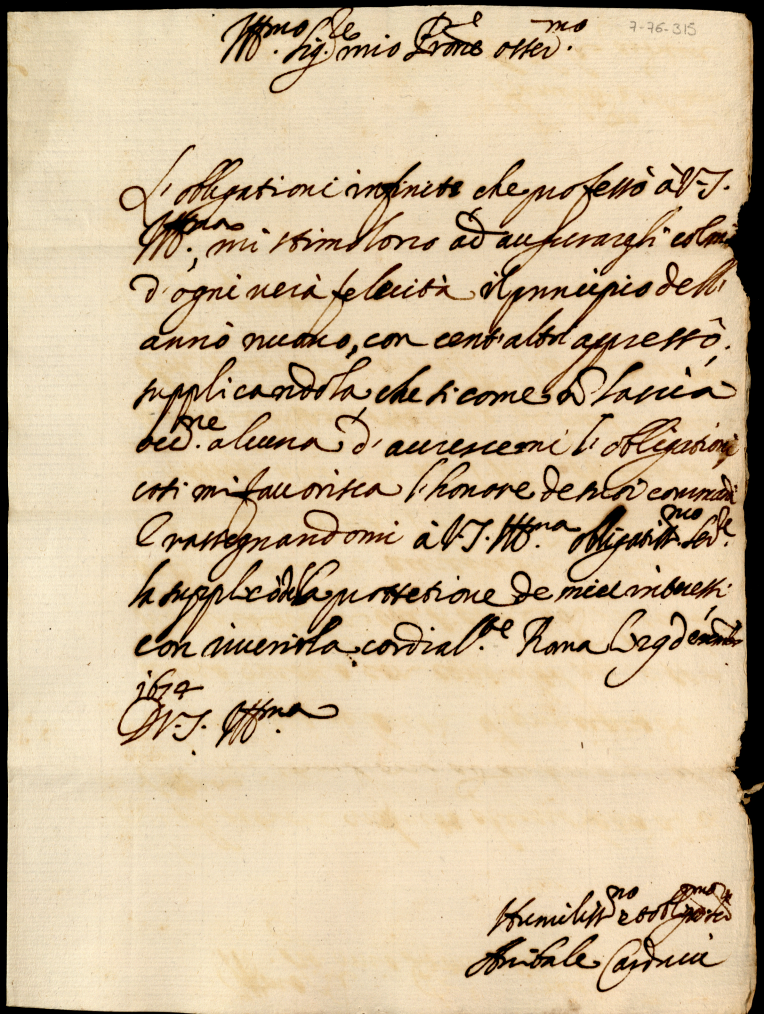 7-76-315
Ill.mo Sig.re mio Pron.e osser.mo
L'obligationi infinite che professo à V.S.
Ill.ma, mi stimolono ad augurargli colmo
d'ogni vera felicità il principio dell'
anno nuovo, con cent'altri appresso,
supplicandola, che si come lascia
occ.ne alcuna d'accrescermi l'obligationi,
così mi favorisca l'honore de suoi comandi
E rassegnandomi à V.S. Ill.ma obligatiss.mo Ser.re
la supplico della protettione de miei interessi
con riverirla cordial.te Roma li 29 decembre
1674
D V.S. Ill.ma
Humiliss.mo et obl.mo ser.re
Anibale Carducci